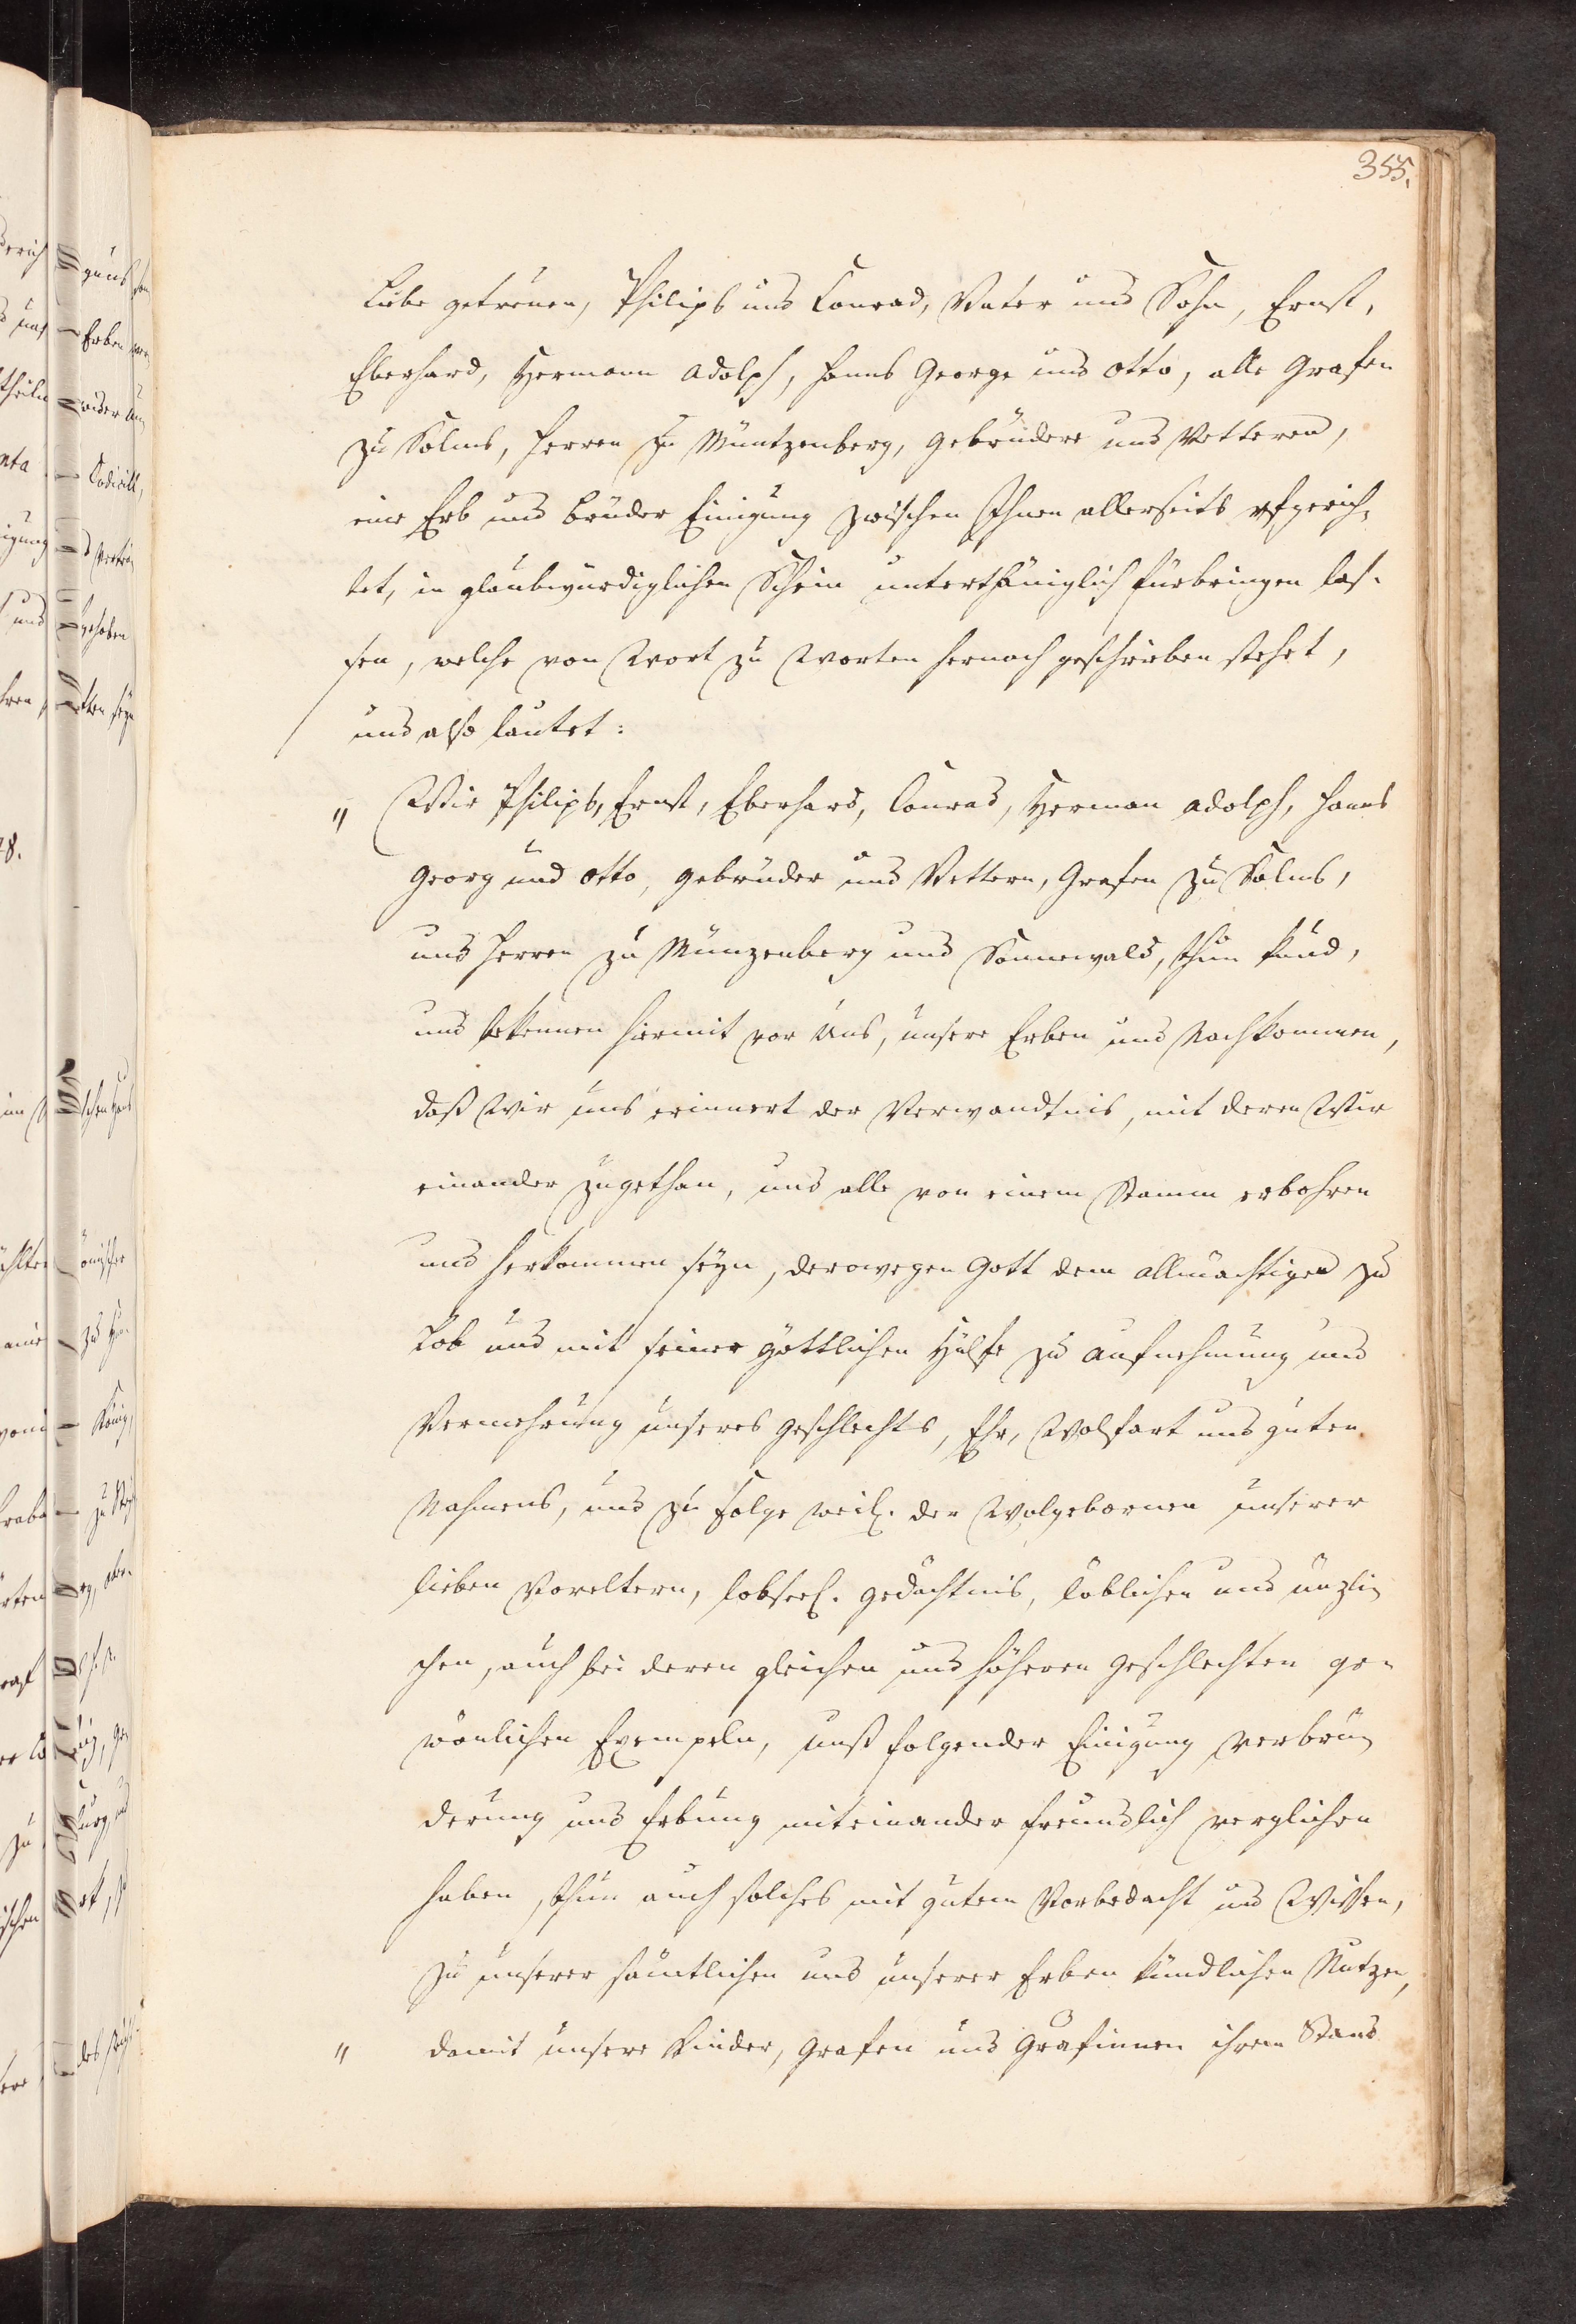 355.
Liebe getreuen, Philips und Conrad, Vater und Sohn, Ernst,
Eberhard, Hermann Adolph, Hanns George und Otto, alle Grafen
zu Solms, Herren zu Müntzenberg, Gebrüdere und Vetteren,
eine Erb und Brüder Einigung zwischen Ihnen allerseits ufgerich-
tet, in glaubwürdiglichen Schein unterthäniglich fürbringen las-
sen, welche von Wort zu Worten hernach geschrieben stehet,
und also lautet:
" Wir Philips, Ernst, Eberhard, Conrad, Herman Adolph, Hanns
Georg und Otto, Gebrüder und Vettern, Grafen zu Solms,
und Herren zu Münzenberg und Sonnewald, thun kund,
und bekennen hiermit vor Uns, unsere Erben und Nachkommen,
daß Wir uns erinnert der Verwandtnis, mit deren Wir
einander zugethan, und alle von einem Stamm erbohren
und herkommen seyn, derowegen Gott dem allmächtigen zu
Lob und mit seiner göttlichen Hülfe zu Aufnehmung und
Vermehrung unseres Geschlechts, Ehr, Wolfart und guten
Nahmens, und zu Folge weil. der Wolgebornen unserer
lieben Voreltern, lobseel. Gedächtnis, löblichen und nüzli-
chen, auch bei deren gleichen und höheren Geschlechten ge-
wönlichen Exempeln, unß folgender Einigung, Verbrü-
derung und Erbung miteinander freundlich verglichen
haben, thun auch solches mit gutem Vorbedacht und Wissen,
zu unserer sämtlichen und unserer Erben kündlichen Nutzen,
" damit unsere Kinder, Grafen und Gräfinnen ihrem Stand